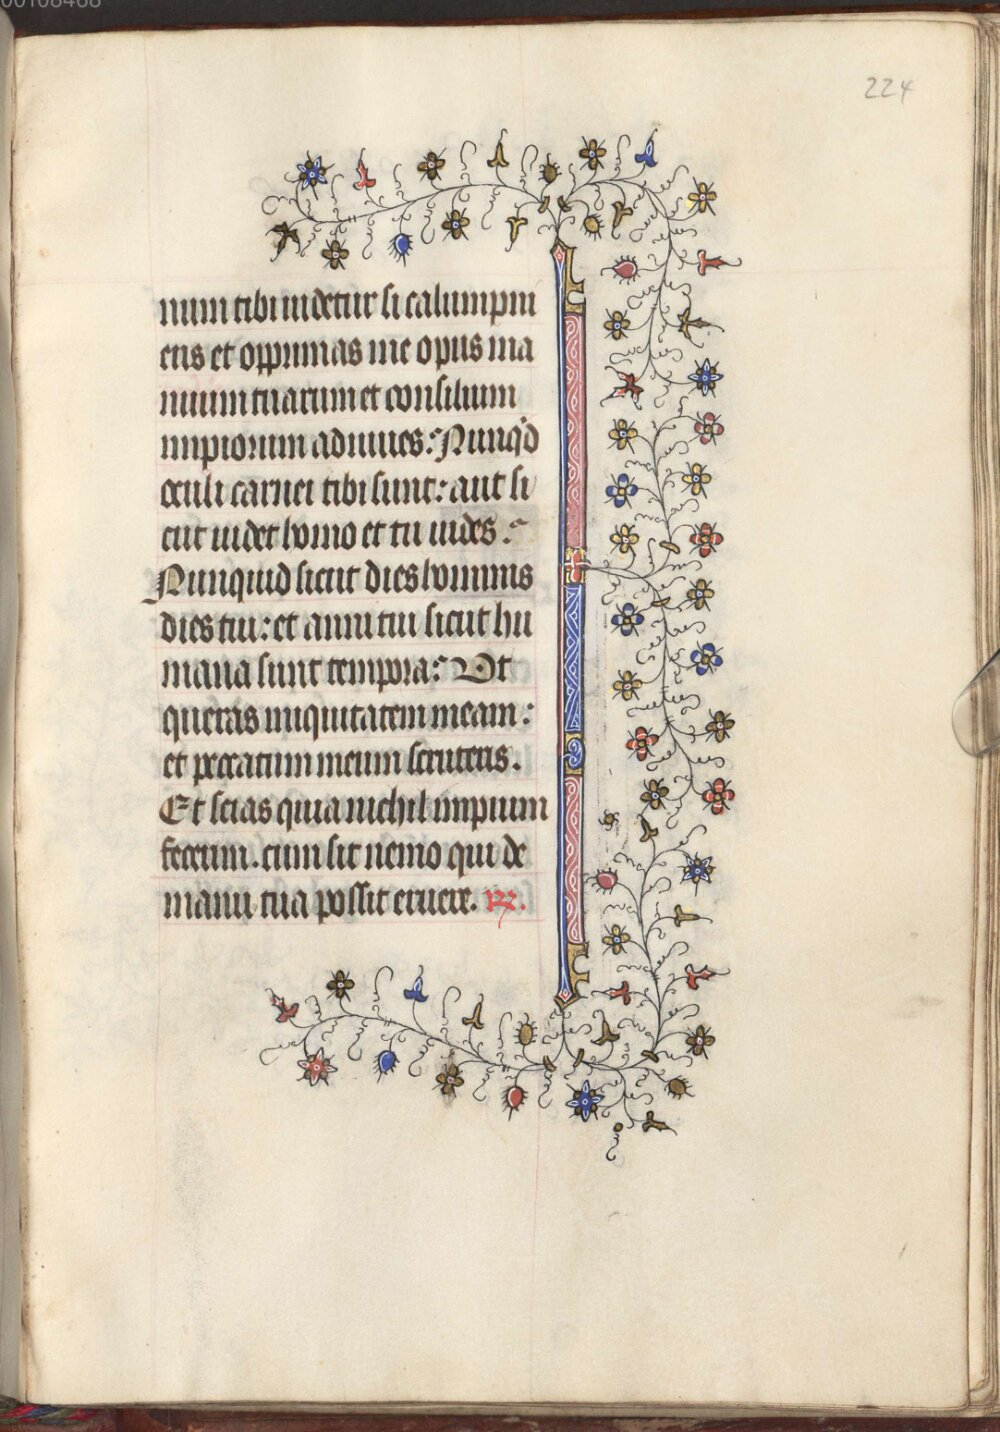 00108468
224
num tibi uidetur si calumpni
eris et opprimas me opus ma
nuum tuarum et consilium
impiorum adiuues: Nunqd
oculi carnei tibi sunt: aut si
cut uidet homo et tu uides.
Nunquid sicut dies hominis
dies tui: et anni tui sicut hu
mana sunt tempora: Ut
queras iniquitatem meam:
et peccatum meum scruteris.
Et scias quia nichil impium
fecerim. cum sit nemo qui de
manu tua possit eruere. R.